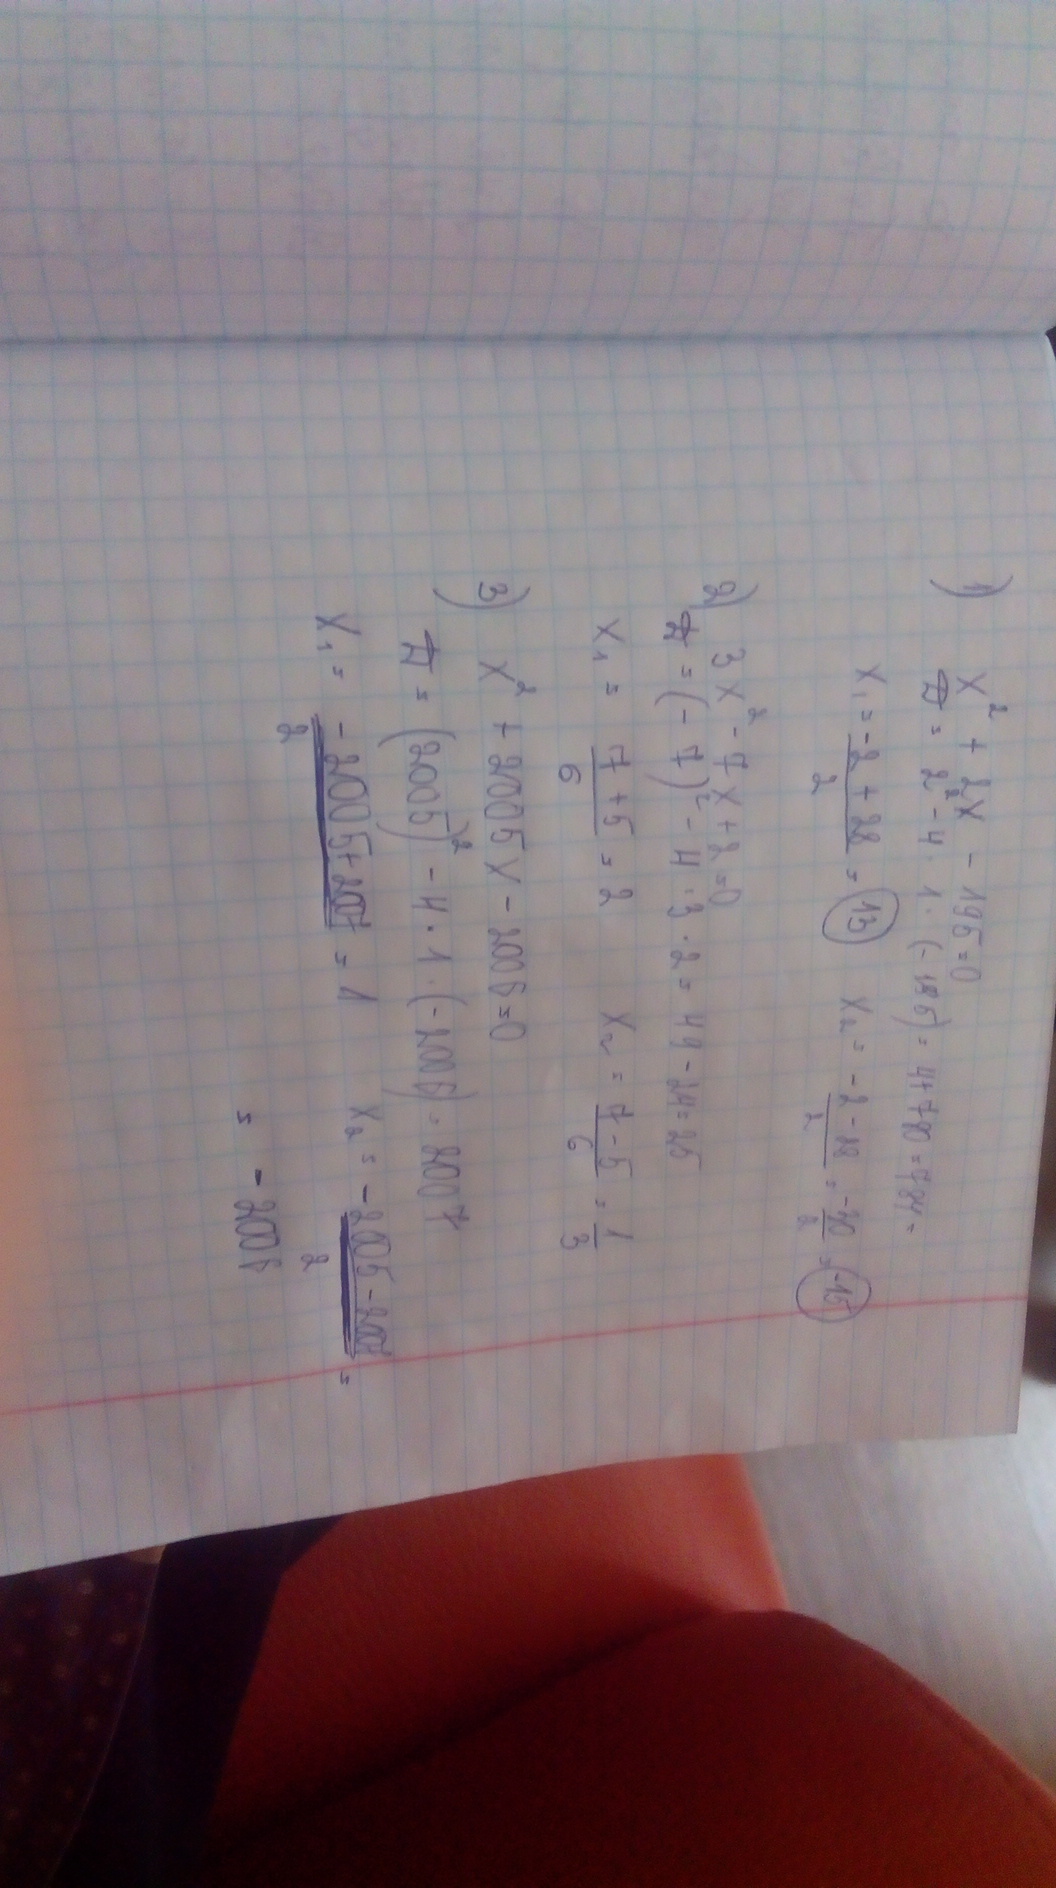 1) x² + 2x - 195 = 0
Д = 2² - 4 · 1 · (-195) = 4+780 = 784 =
x₁ = -2 + 28 / 2 = 13   x₂ = -2 - 28 / 2 = -30 / 2 = -15
2) 3x² - 7x + 2 = 0
Д = (-7)² - 4 · 3 · 2 = 49 - 24 = 25
x₁ = 7 + 5 / 6 = 2   x₂ = 7 - 5 / 6 = 1 / 3
3) x² + 2005x - 2006 = 0
Д = (2005)² - 4 · 1 · (-2006) = 2007
x₁ = -2005+2007 / 2 = 1   x₂ = -2005 - 2007 / 2 =
= -2006